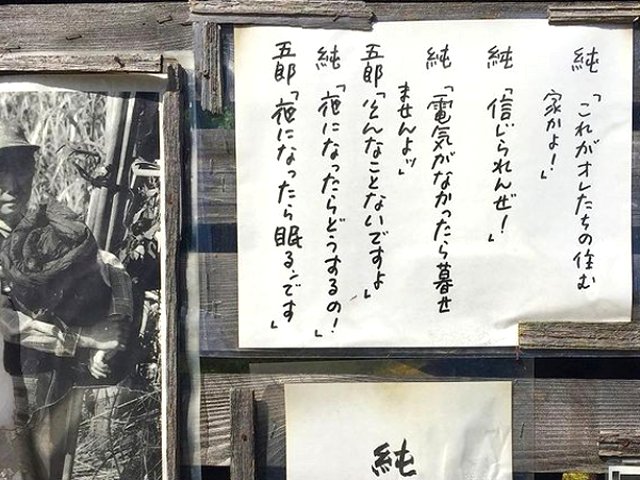 純「これがオレたちの住む
家かよ!」
純「信じられんぜ!」
純「電気がなかったら暮せ
ませんよッ」
五郎「そんなことないですよ」
純「夜になったらどうするの!」
五郎「夜になったら眠るンです」
純